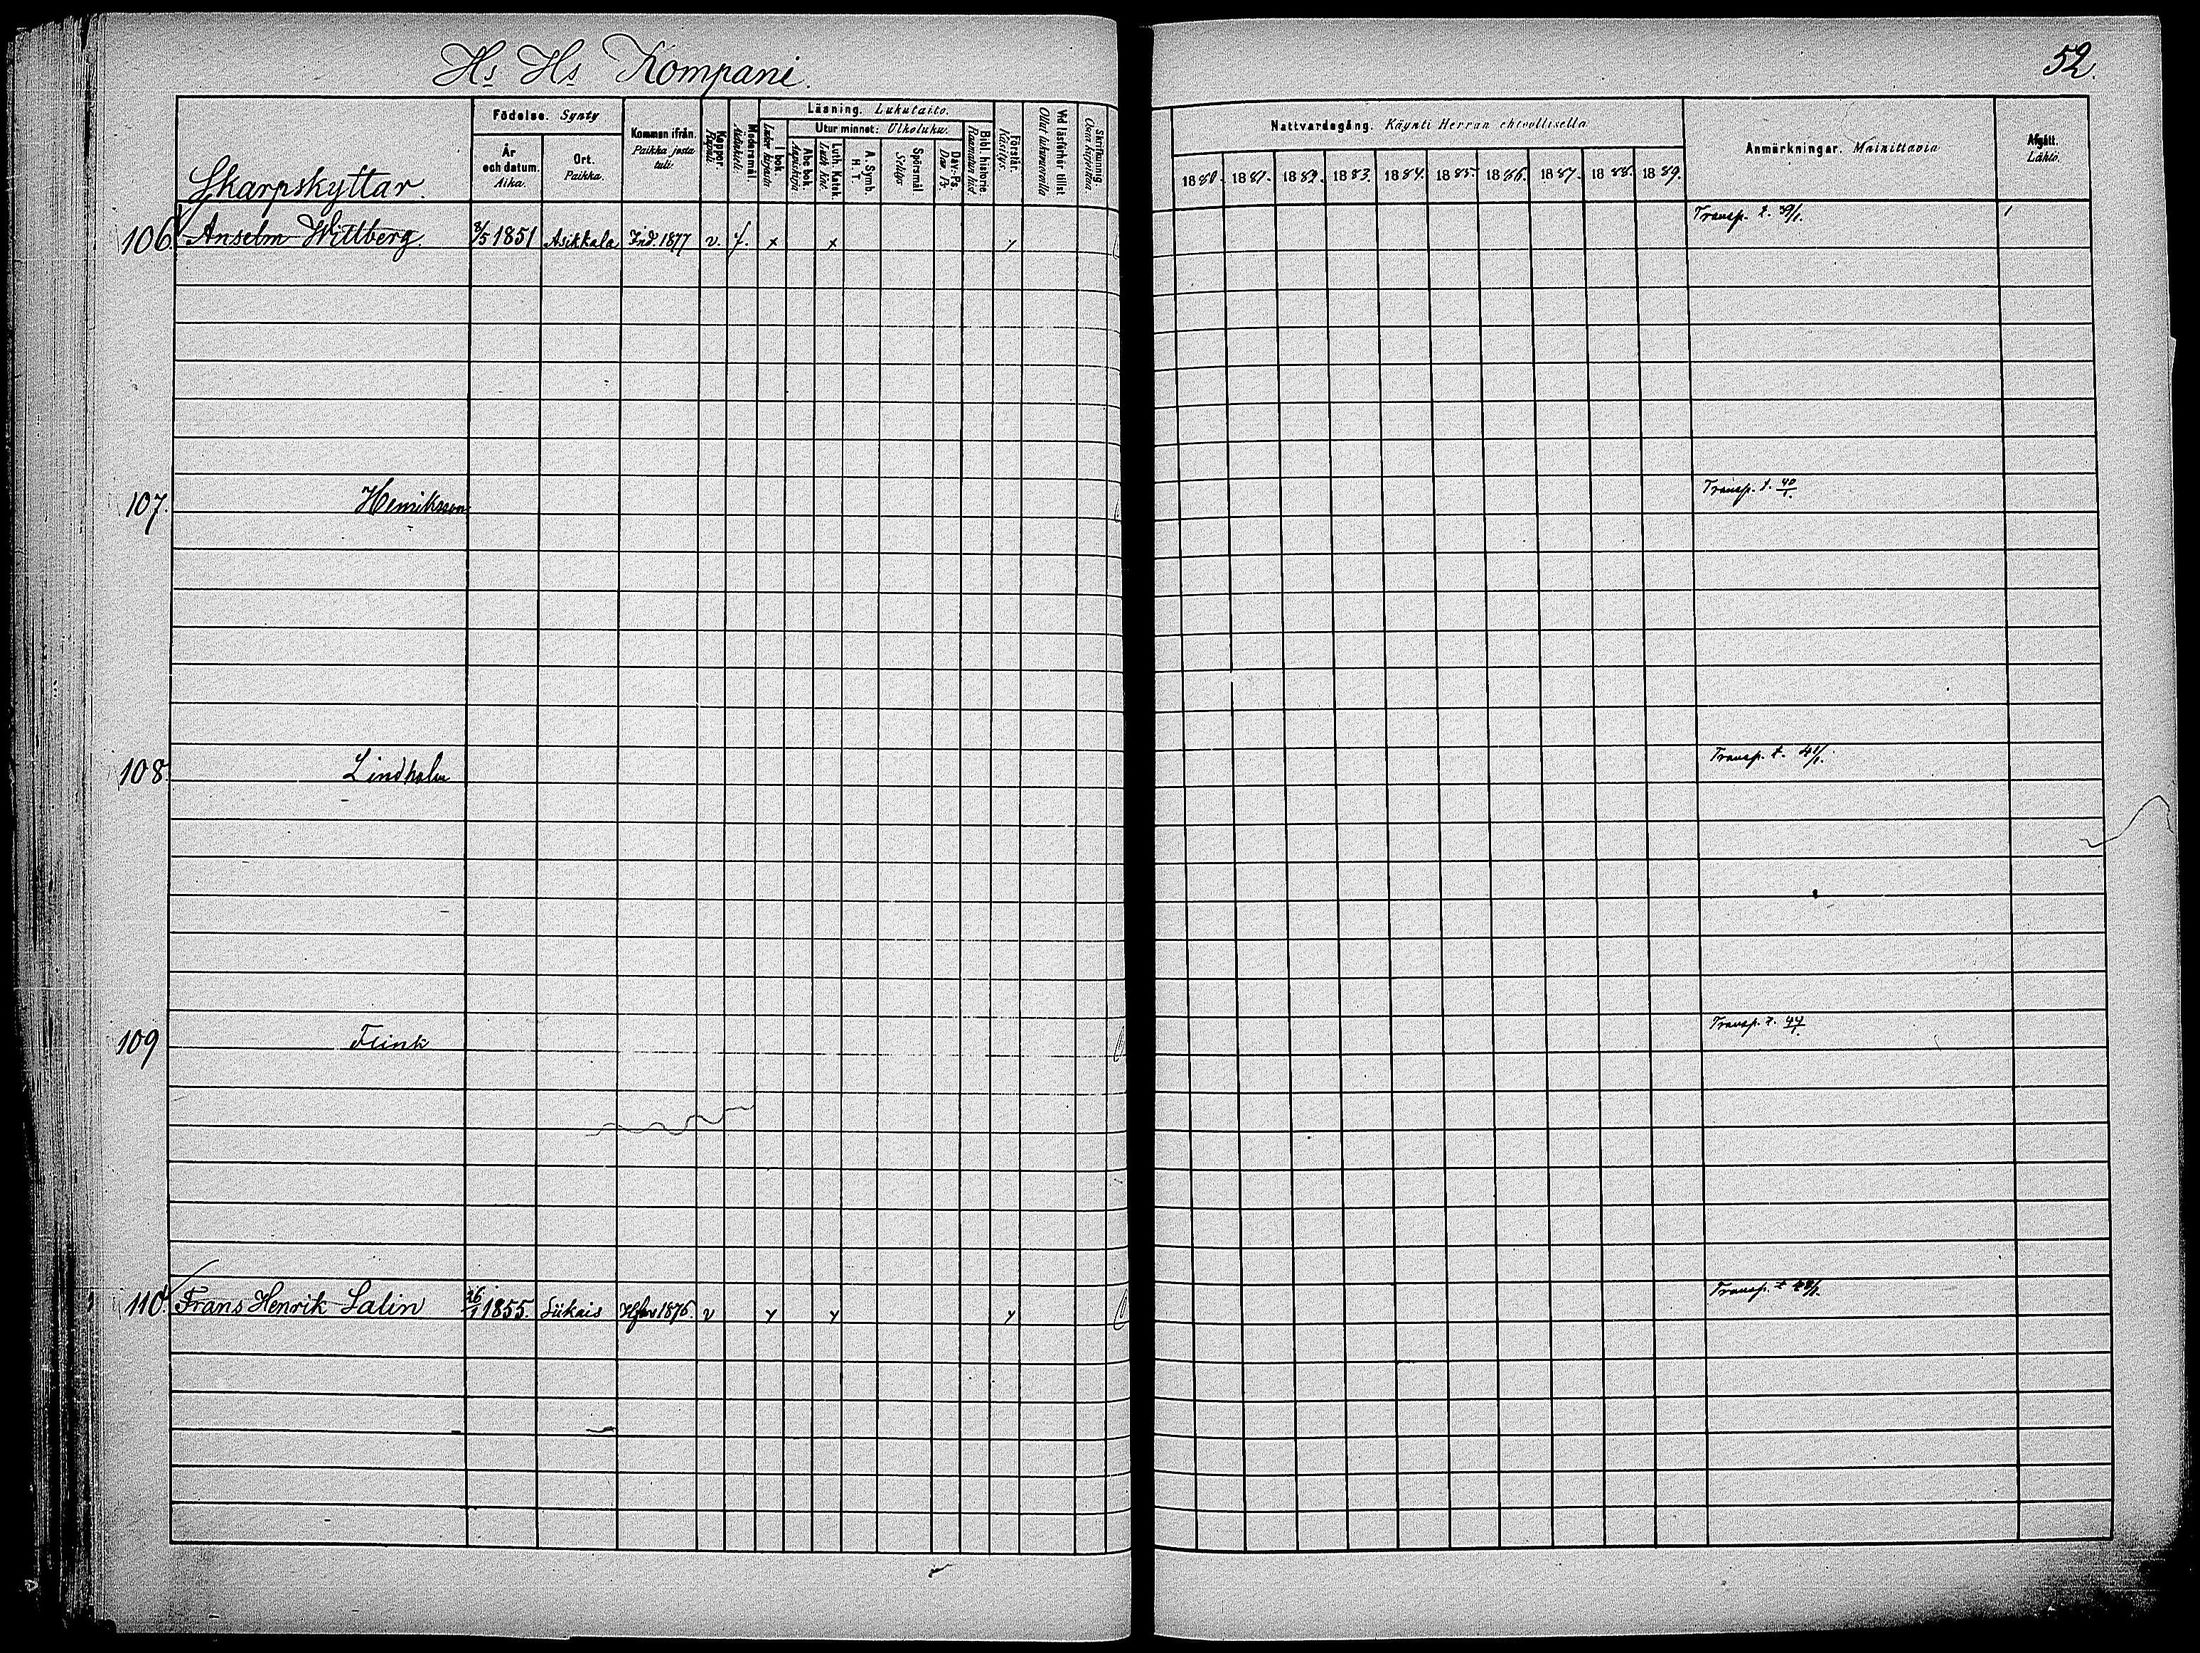 Hs Hs Kompani.
52.
Skarpskyttar.
Födelse. Synty
År och datum. Aika.
Ort. Paikka.
Kommen ifrån. Paikka josta tuli.
Koppor. Rupuli.
Modersmål. Äidinkieli.
Läsning. Lukutaito.
I bok.
Utur minnet: Ulkoluku.
Abc bok
Luth. Katek.
A. Symb. H. T.
Spörsmål.
Dav. Ps
Bibl. historie.
Förstår. Käsitys.
Vid läsförhör tillst
Skrifkunnig.
Nattvardsgång. Käynti Herran ehtoollisella
1880. 1881. 1882. 1883. 1884. 1885. 1886. 1887. 1888. 1889.
Anmärkningar. Mainittavia
Afgått. Lähtö.
106. Anselm Wittberg. 3/5 1851 Asikkala Ind. 1877 v. f. x x y Transp. t. 39/1.
107. Henriksson Transp. t. 40/1.
108. Lindholm Transp. t. 41/1.
109 Flink Transp. t. 44/1.
110. Frans Henrik Salin 26/1 1855. Siikais 1876. v y y y Transp. t 48/1.